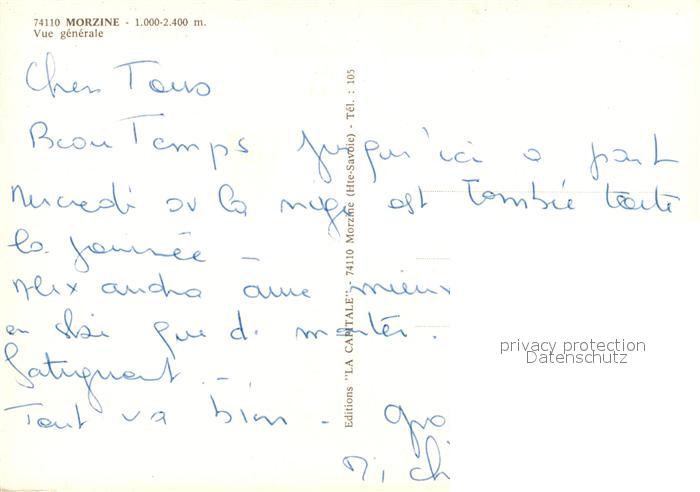 74110 MORZINE - 1.000-2.400 m.
Vue générale
Cher Tous
Beau Temps jusqu'ici a part
Mercredi ou la neige est Tombée toute
la journée -
Alexandra aime mieux
en ski que de monter.
fatiguant - -
Tout va bien - Gro
Mich
Editions "LA CAPITALE" - 74110 Morzine (Hte-Savoie) - Tél. : 105
privacy protection
Datenschutz